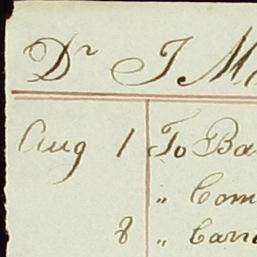 Dr J M
Aug 1 To Ba
" Com
8 " Carr